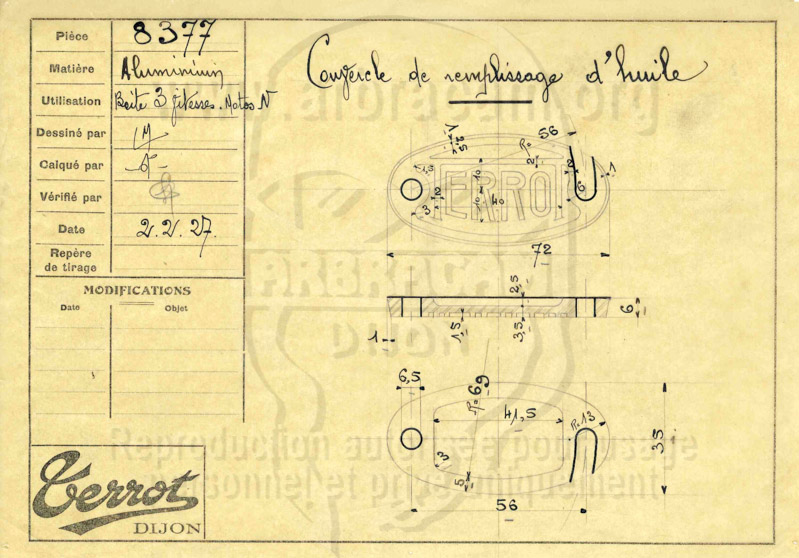 Pièce 8377
Matière Aluminium
Utilisation Boite 3 Vitesses. Motos N
Dessiné par
Calqué par
Vérifié par
Date 2.2.27.
Repère
de tirage
MODIFICATIONS
Date Objet
Terrot
DIJON
Couvercle de remplissage d'huile
56
1
5,5
R=
2
1
1,5
10
2
6
TERROT
2
10
40
3
72
2,5
6
1,5
3,5
1
6,5
R=69
41,5
R=13
35
3
5
56
www.arbracam.org
ARBRACAM
DIJON
Reproduction autorisée pour usage
personnel et privé uniquement